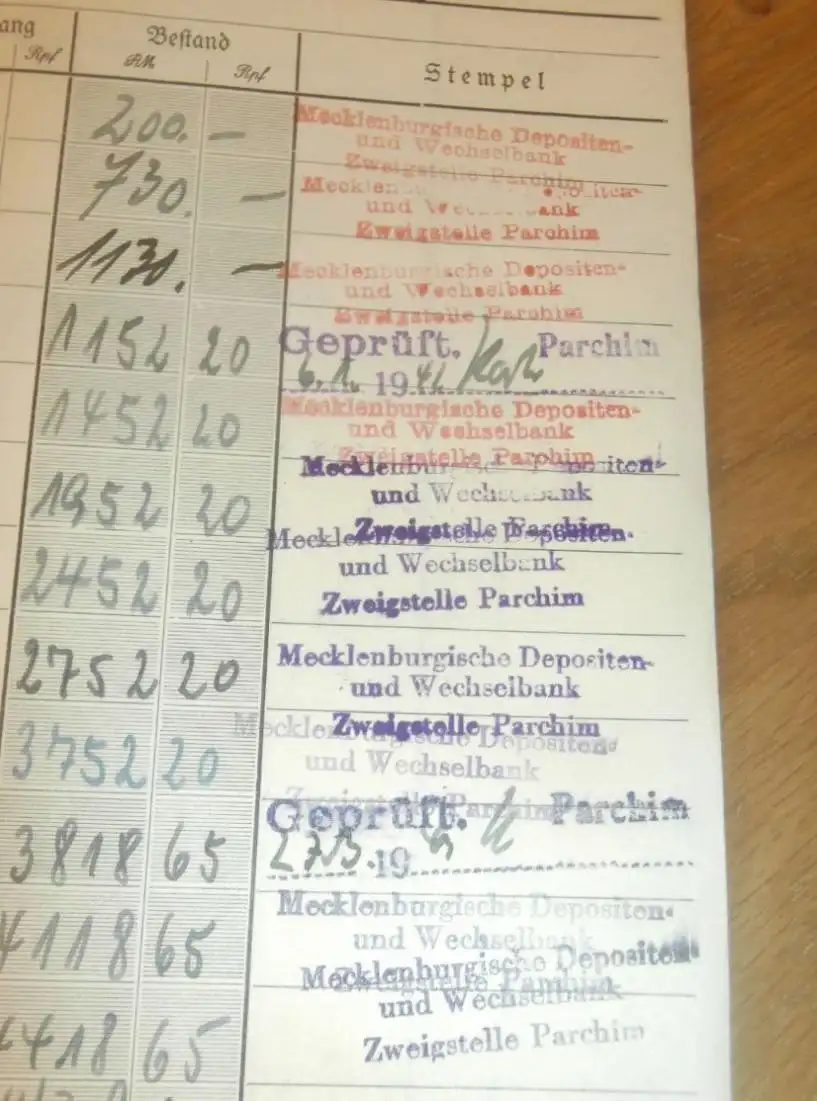 ang Bestand Stempel
Rpf RM Rpf
200. —
Mecklenburgische Depositen-
und Wechselbank
Zweigstelle Parchim
730. —
Mecklen ositen-
und We ank
Zweigstelle Parchim
1130. —
Mecklenburgische Depositen-
und Wechselbank
Zweigstelle Parchim
1152 20
Geprüft. Parchim
19
1452 20
Mecklenburgische Depositen-
und Wechselbank
Zweigstelle Parchim
1952 20
Mecklenbur ositen-
und Wechselbank
Zweigstelle Parchim
2452 20
Mecklenburgische Depositen-
und Wechselbank
Zweigstelle Parchim
2752 20
Mecklenburgische Depositen-
und Wechselbank
Zweigstelle Parchim
3752 20
Mecklenburgische Depositen-
und Wechselbank
Zweigstelle Parchim
3818 65
Geprüft. Parchim
19
4118 65
Mecklenburgische Depositen-
und Wechselbank
Zweigstelle Parchim
4418 65
Mecklenburgische Depositen-
und Wechselbank
Zweigstelle Parchim